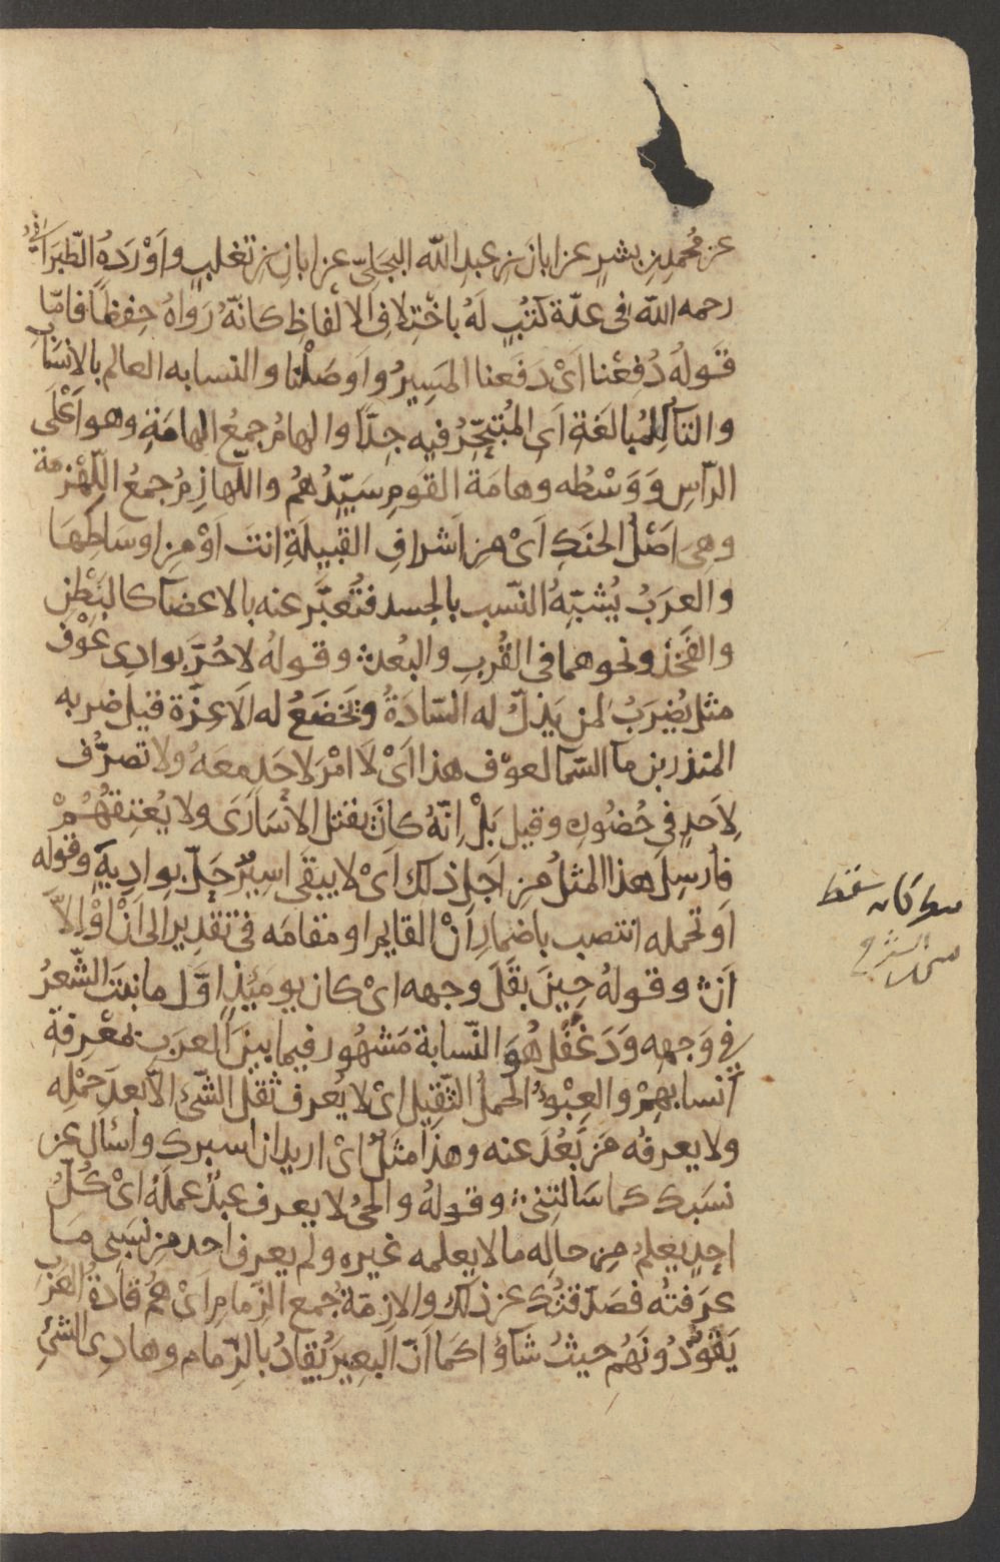 عن محمد بن بشر عن ابان بن عبد الله البجلىّ عن ابان بن تغلب واَوْرَدَهُ الطّبرَانى
رحمه الله فى عدّة كُتُبٍ لَهُ باخْتِلافِ الالفاظِ كانّهُ رَوَاهُ حِفظًا فامّا
قَولهُ دُفِعْنا اَىْ دَفَعنا المَسِيرُ واَوصَلْنا والنسابه العالم بالانسَابِ
والتآ لِلمُبالغَةِ اَىِ المُتبَحِّرُ فيه جِدّاً والهامُ جمعُ الهامَةِ وهو اَعْلَى
الرّاسِ وَوَسْطُه وهامَة القَومِ سَيّدُهُمْ واللّهازمُ جمعُ اللّهْزمة
وهِىَ اَصْلُ الحنَكِ اَىْ من اَشرافِ القَبِيلَةِ انتَ اَوْ مِن اوسَاطِهَا
والعرَبُ يُشَبِّهُ النّسب بالجسد فتُعبَّر عنه بالاعضآ كالبَطْنِ
والفَخْذ ونحوهما فى القُربِ والبُعدِ وقولهُ لا حُرَّ بوادِى عَوْف
مثل يُضرَبُ لمن يَذِلّ له السّادَةُ وتَخضَعُ له الاَعِزّة قيل ضربه
المنذر بن مآ السّمآ لعوْف هذا اَىْ لاَ امْرَ لاحَدٍ معَهُ ولا تصرُّف
لاِحدٍ فى حُضُورِه وقيل بَلْ اِنّهُ كانَ يقتل الاُسَارَى ولا يُعْتِقُهُمْ
فاُرسِلَ هذا المثلُ من اَجلِ ذلك اَىْ لا يبقَى اسِيرٌ حَلّ بوادِيهِ وقوله
اَو تحمله انتصب باضمار اَنْ القايم او مقامَه فى تقدير الى اَنْ اَوْ الاّ
اَن وقولهُ حِينَ بَقَلَ وجهه اىْ كان يوميذٍ اوّل ما نبَتَ الشّعرُ
فِى وَجهِه وَدَغفَل هُوَ النّسابة مَشهُور فيما بينَ العرَبِ بمَعْرِفةِ
اَنسابِهِمْ والعِبْءُ الحملُ الثّقِيل اىْ لا يُعرف ثقل الشّئ الاّ بعدَ حَمْلِه
ولا يعرفُه مَن بَعُدَ عنه وهذا مثَلٌ اىْ اريد ان اسبرك واسْال عن
نسَبك كما سَالتنى وقولهُ والحىُّ لا يعرف عبءٌ عملَهُ اىْ كُلُّ
احدٍ يعلمُ من حالِه ما لا يعلمه غيره ولم يعرف احد من نسَبى مَا
عرَفتُه فصَدّقتُكِ عن ذلك والازمّة جمع الزّمامِ اَىْ هُم قادةُ العَربِ
يَقُودُونَهُم حيثُ شآؤُا كمَا اَنّ البعِيرَ يُقادُ بالزّمام وهادِى الشئِ